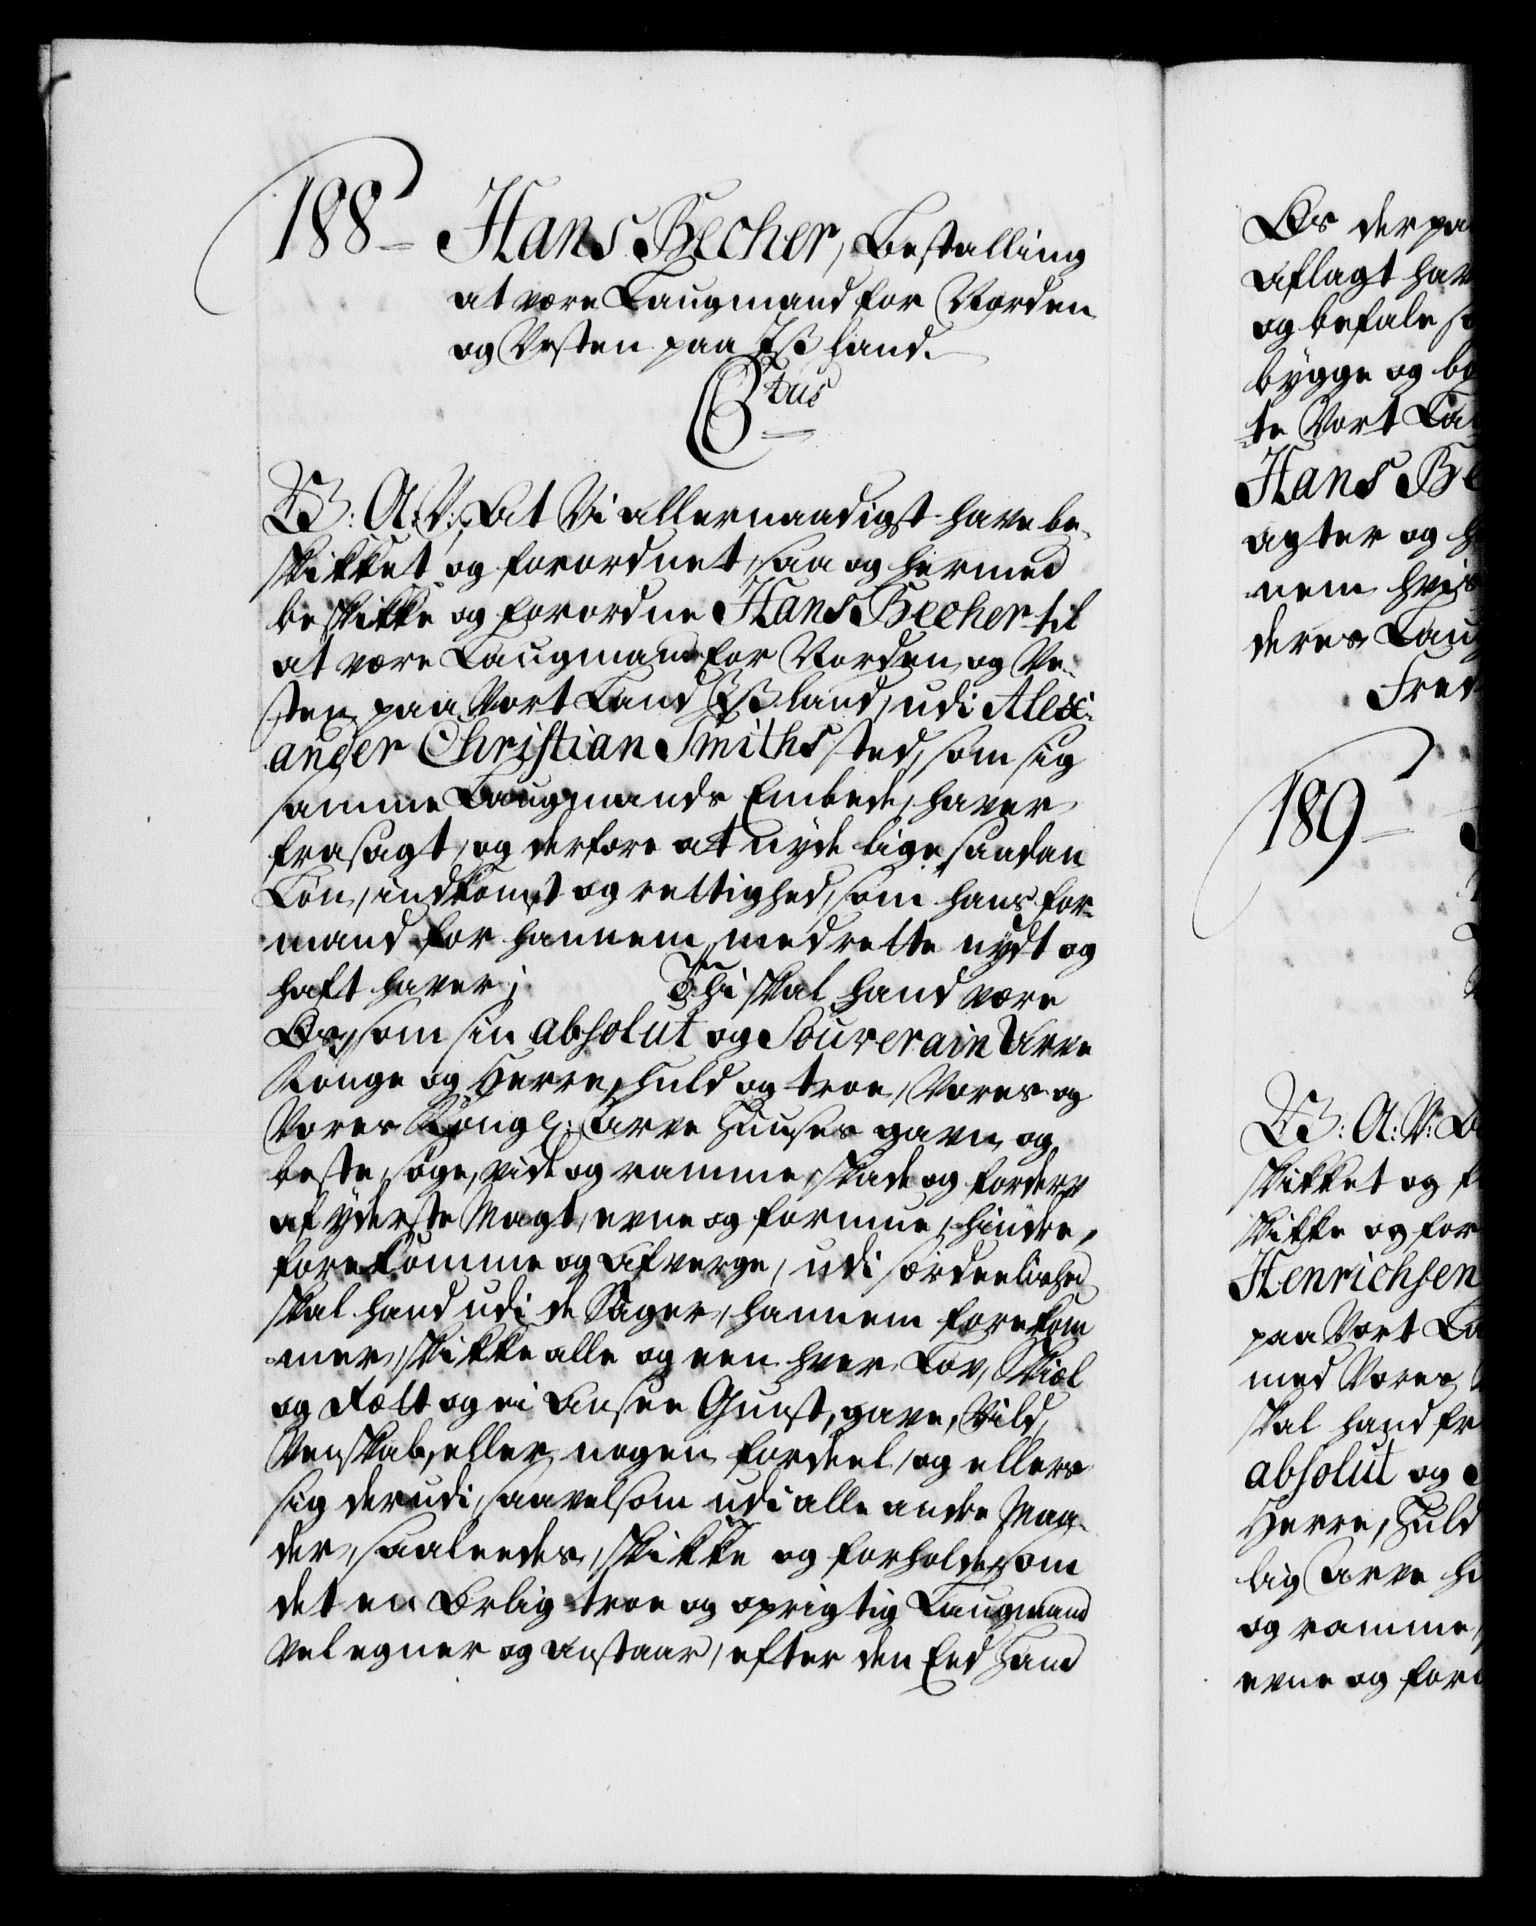 188 Hans Becher, Bestalling
at være Laugmand for Norden
og Vesten paa Iszland.
Ctus
V: A: V: at Vi allernaadigst have be-
skikket og forordnet, saa og hermed
beskikke og forordne Hans Becher til
at være Laugmand for Norden og Ve-
sten paa Vort Land Iszland, udi Alex-
ander Christian Smiths sted, som sig
samme Laugmands Embede, haver
frasagt, og derfore at nyde lige saadan
Løn, indkomst og rettighed, som hans for-
mand for hannem, med rette nydt og
haft haver; Thi skal hand være
Os, som sin absolut og Souverain Arve
Konge og Herre, huld og troe, Vores og
Vores Kongl: Arve Huuses gavn og
beste, søge, vide og ramme, skade og forderv
af yderste Magt, evne og formue, hindre,
forekomme og afverge, udi særdeelished
skal hand udi de Sager, hannem forekom
mer, skikke alle og een hver Lov, Skiæl
og Rætt og ei ansee Gunst, gave, Vild,
Venskab, eller nogen fordeel, og ellers
sig derudi, saavelsom udi alle andre Maa-
der, saaleedes, skikke og forholde, som
det en Ærlig troe og oprigtig Laugmand
vel egner og anstaar, efter den Eed Hand
Os derpaa
aflagt hav
og befale s
bygge og bo
te Vort La
Hans Be
agter og h
nem hvis
deres Laug
Fred
189
V: A: V: A
skikket og f
skikke og for
Henrichsen
paa Vort La
med Vores
skal hand fr
absolut og S
Herre, Huld
lig Arve H
og ramme,
evne og form